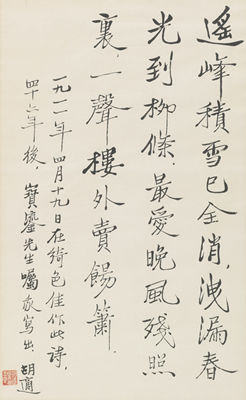 遙峰積雪已全消，洩漏春
光到柳條．最愛晚風殘照
裏，一聲樓外賣餳簫．
一九一一年四月十九日在綺色佳作此詩，
四十六年後，寶鎏先生囑我寫出．胡適